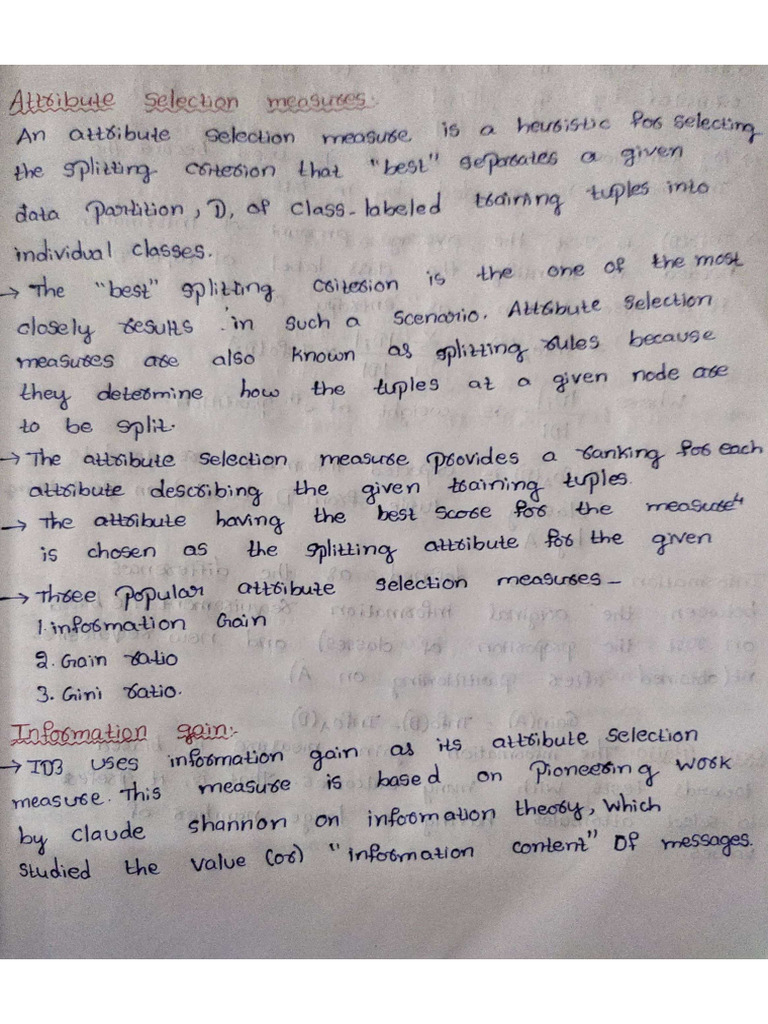 Attribute selection measures:
An attribute selection measure is a heuristic for selecting
the splitting criterion that "best" seperates a given
data partition, D, of class-labeled training tuples into
individual classes.
→ The "best" splitting criterion is the one of the most
closely results in such a scenario. Attribute selection
measures are also known as splitting rules because
they determine how the tuples at a given node are
to be split.
→ The attribute selection measure provides a ranking for each
attribute describing the given training tuples.
→ The attribute having the best score for the measure
is chosen as the splitting attribute for the given
→ Three popular attribute selection measures -
1. information Gain
2. Gain ratio
3. Gini ratio.
Information gain:-
→ ID3 uses information gain as its attribute selection
measure. This measure is based on pioneering work
by claude shannon on information theory, which
studied the value (or) "information content" of messages.